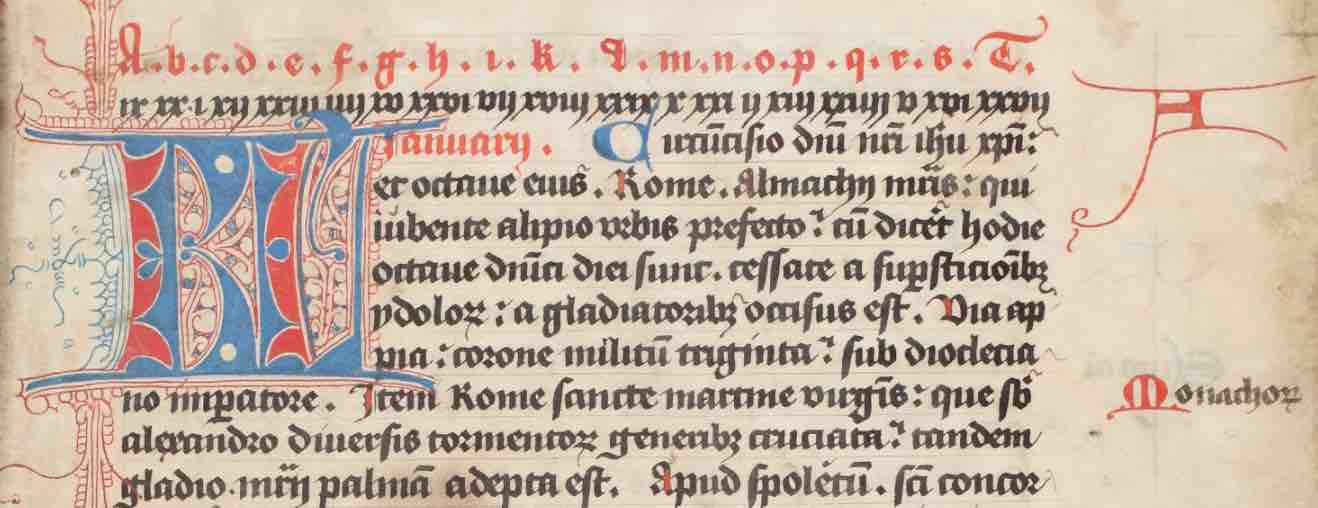 A.b.c.d.e.f.g.h.i.k.l.m.n.o.p.q.r.s.T.
ix xx i xij xxiii iiij xv xxvi vij xviij xxix x xxi ij xiij xxiiij v xvi xxvij
KL Januarij. Circūcisio dn̄i nr̄i ihū xp̄i: A
et octaue eius. Rome. Almachij mr̄is: qui
iubente alipio vrbis prefecto: cū dicēt hodie
octaue dn̄ici diei sunt. cessate a sup̱sticioībꝫ
ydoloꝝ: a gladiatoribꝫ occisus est. Via ap
pia: corone militū triginta: sub dioclecia
no imp̱atore. Item Rome sancte martine virgīs: que sb̄ Monachoꝝ
alexandro diuersis tormentoꝝ generibꝫ cruciata: tandem
gladio mr̄ij palmā adepta est. Apud spoletū. sc̄i concor